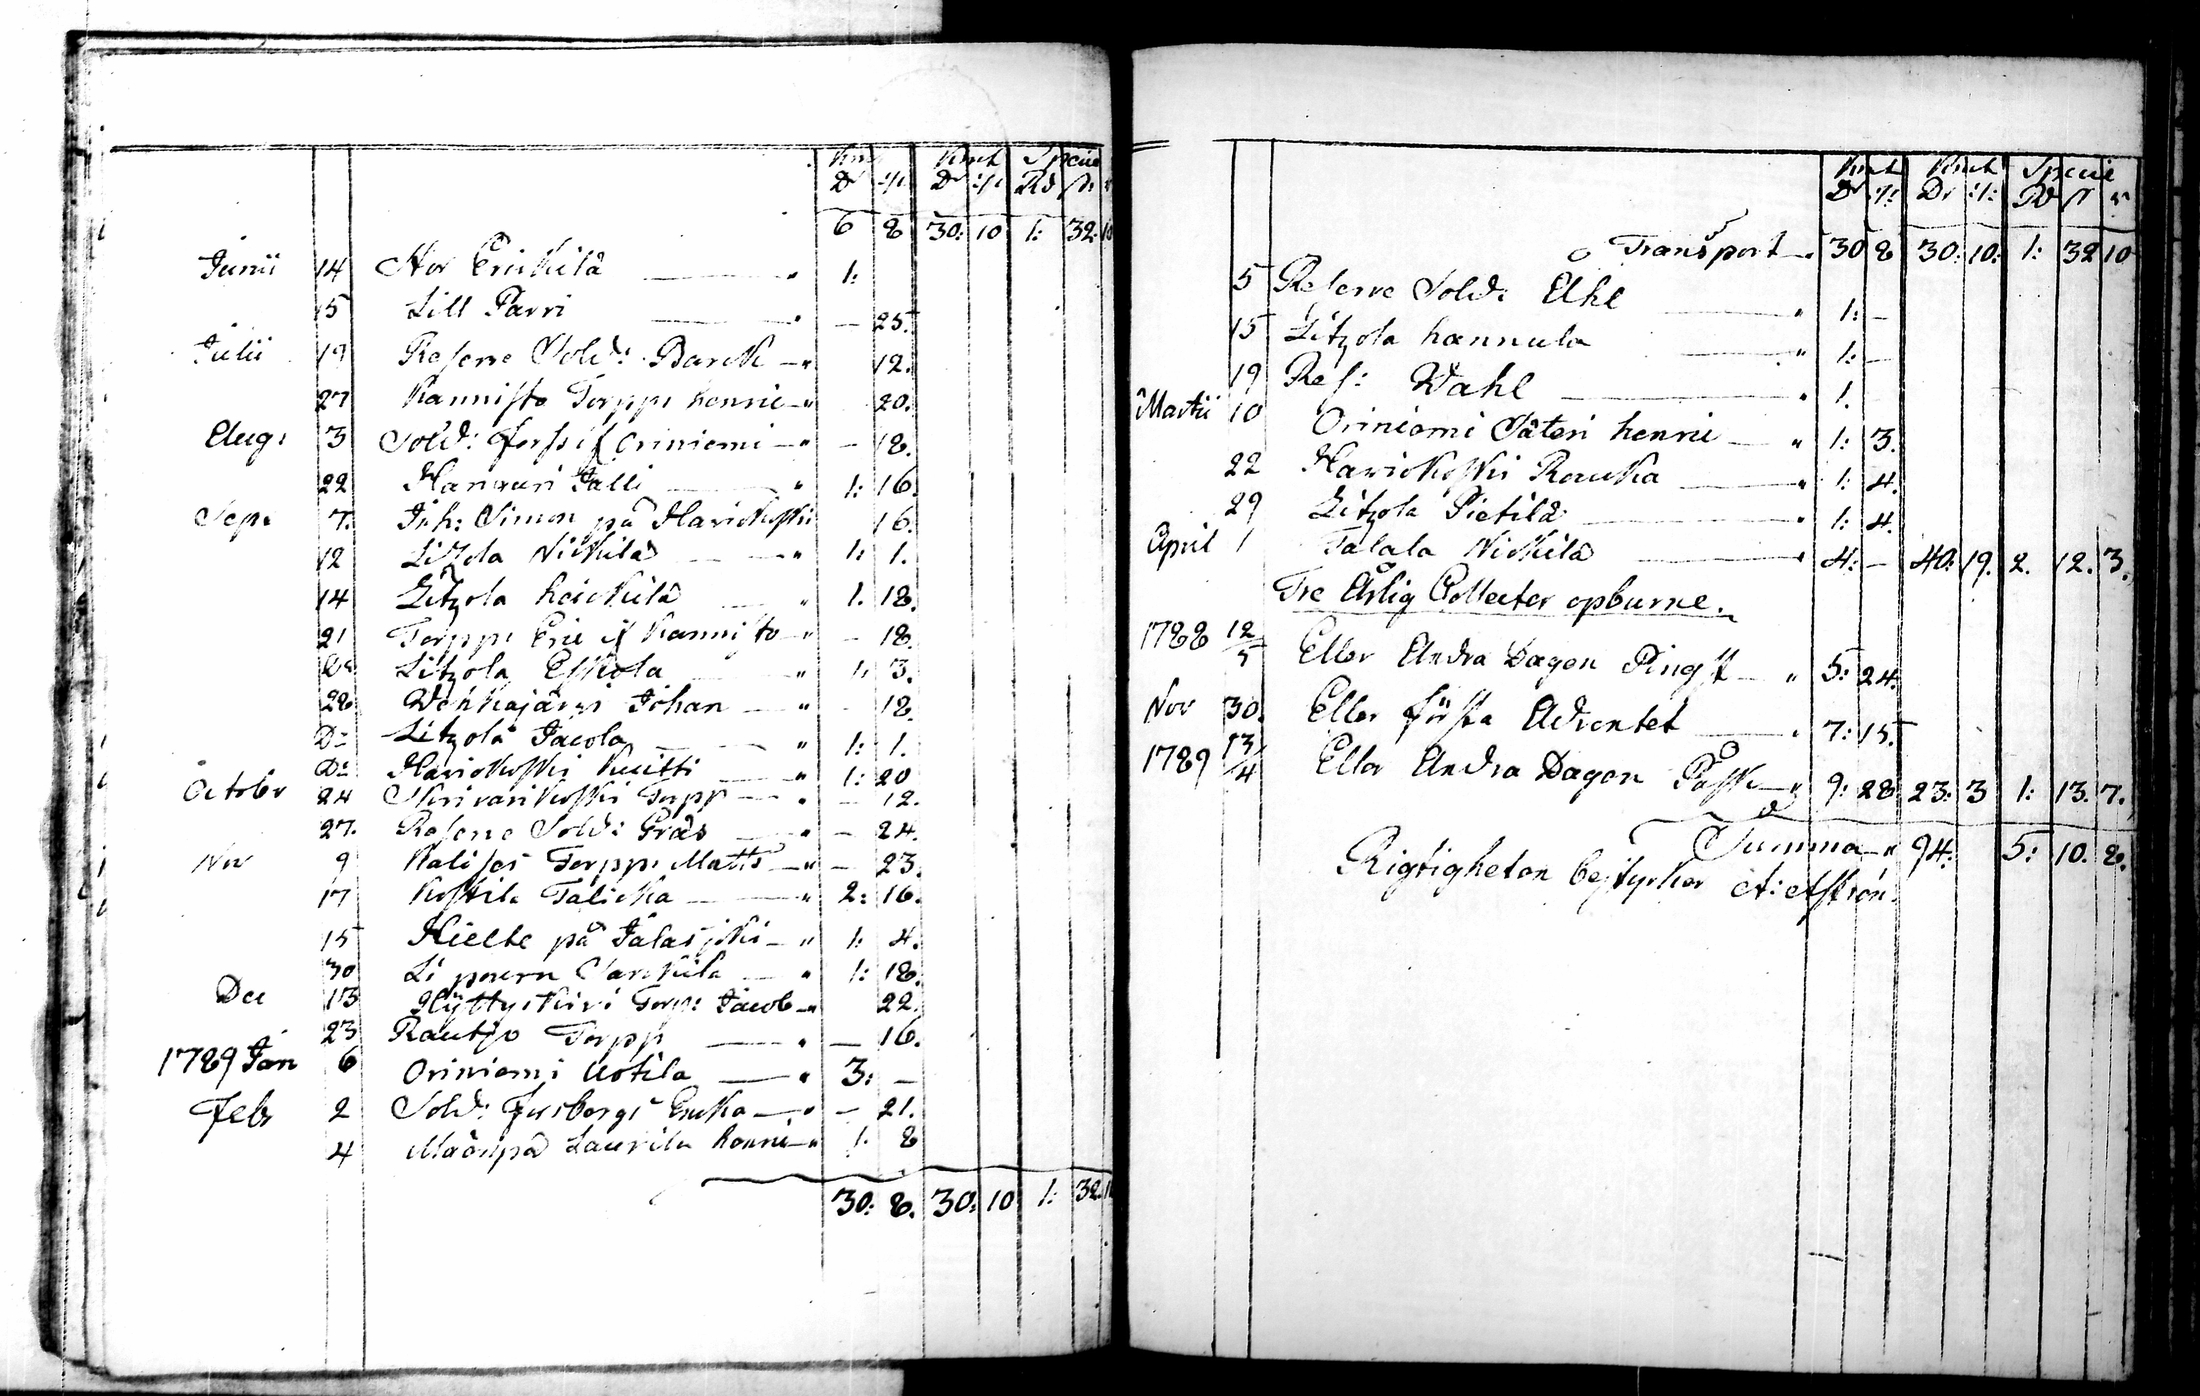 Kmt Kmt Specie
Dr :/: Dr :/: Rd ß:
6 8 30: 10 1: 32: 10
Junii 14 Stor Erickilä — " 1:
15 Lill Parri — " — 25.
Julii 19 Reserve Sold: Barck — " 12.
27 Kannisto Torpp: henric — " 20.
Aug: 3 Sold: Forss if Oriniemi — " — 18.
22 Hanuuri Jalli — " 1: 16.
Sep: 7. Inh: Simon på Hariokoski 16.
12 Litzola Nickilä — " 1: 1.
14 Litzola heickilä — " 1. 18.
21 Torpp: Eric if Kannisto — " — 18.
Do Litzola Eskola — " 1: 3.
28 Wehkajärvi Johan — " — 18.
Do Litzola Jacola — " 1: 1.
Do Hariokoski Knitti — " 1: 20
Octobr 24 Skrivarikoski Torpp — " — 12.
27. Reserve Sold: Gräs — " — 24.
Nov 9 Kalisos Torpp: Matts — " — 23.
17 Koskila Talicka — " 2: 16.
15 Hielte på Jalasjoki — " 1: 4.
30 Li Sarickila — " 1: 18.
Dec 13 Hyttyskivi Torp: Jacob — " 22.
23 Rautjo Torpp — " — 16.
1789 Jan 6 Oriniemi Uotila — " 3: —
Febr 2 Sold: Forsbergs Encka — " — 21.
4 Mäenpä Laurila henric — " 1: 8
30: 8. 30: 10 1: 32: 10
Kmt Kmt Specie
Dr :/: Dr :/: Rd ß r
Transport — 30 8 30: 10: 1: 32 10
5 Reserve Sold: Ahl — " 1: —
15 Litzola hannula — " 1: —
19 Res: Wahl — " 1.
Martii 10 Oriniemi Säteri henric — " 1: 3.
22 Hariokoski Rauka — " 1: 4.
29 Litzola Pietilä — " 1: 4.
April 1 Talala Nickilä — " 4: — 40: 19. 2. 12. 3.
Tre Årlig Collecter opburne.
1788 12/5 Eller Andra Dagen Pingst — " 5: 24.
Nov 30. Eller första Adventet — " 7: 15.
1789 13/4 Eller Andra Dagen Påsk — " 9: 28 23: 3 1: 13. 7.
Summa — " 94: 5: 10. 8.
Rigtigheten bestyrker A: Aström.